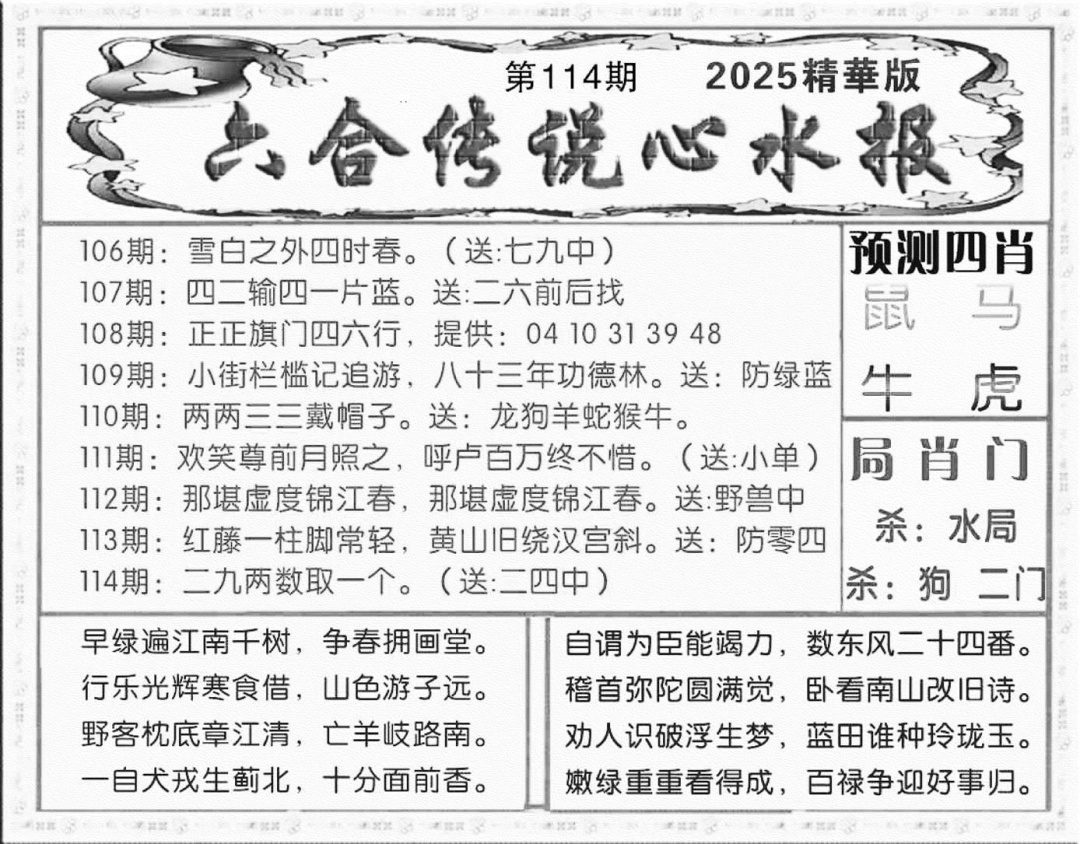 第114期 2025精華版
六合传说心水报
106期：雪白之外四时春。（送:七九中）
107期：四二输四一片蓝。送:二六前后找
108期：正正旗门四六行，提供：04 10 31 39 48
109期：小街栏槛记追游，八十三年功德林。送：防绿蓝
110期：两两三三戴帽子。送：龙狗羊蛇猴牛。
111期：欢笑尊前月照之，呼卢百万终不惜。（送:小单）
112期：那堪虚度锦江春，那堪虚度锦江春。送:野兽中
113期：红藤一柱脚常轻，黄山旧绕汉宫斜。送：防零四
114期：二九两数取一个。（送:二四中）
预测四肖
鼠 马
牛 虎
局肖门
杀：水局
杀：狗 二门
早绿遍江南千树，争春拥画堂。
行乐光辉寒食借，山色游子远。
野客枕底章江清，亡羊岐路南。
一自犬戎生蓟北，十分面前香。
自谓为臣能竭力，数东风二十四番。
稽首弥陀圆满觉，卧看南山改旧诗。
劝人识破浮生梦，蓝田谁种玲珑玉。
嫩绿重重看得成，百禄争迎好事归。